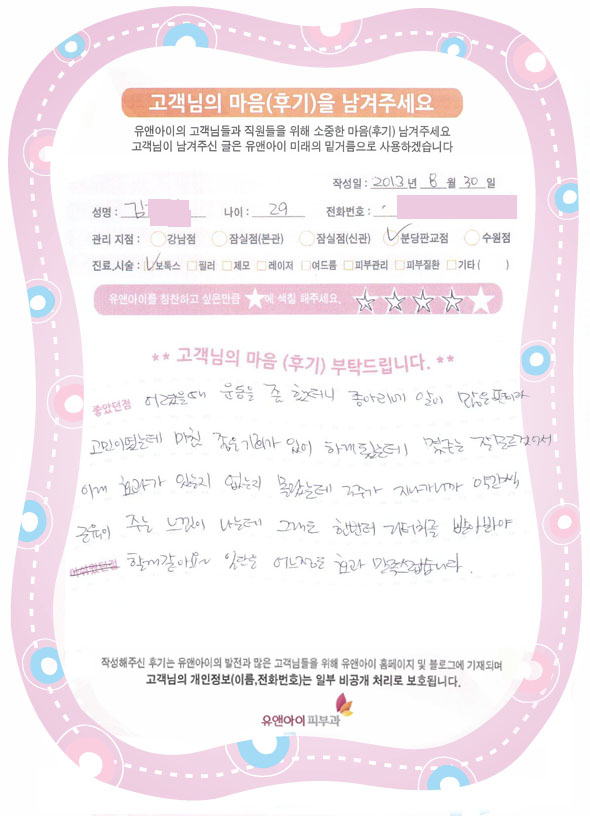 고객님의 마음(후기)을 남겨주세요
유앤아이의 고객님들과 직원들을 위해 소중한 마음(후기) 남겨주세요
고객님이 남겨주신 글은 유앤아이 미래의 밑거름으로 사용하겠습니다
작성일 : 2013 년 8 월 30 일
성명 : 김 나이 : 29 전화번호 :
관리 지점 : 강남점 잠실점(본관) 잠실점(신관) 분당판교점 수원점
진료,시술 : 보톡스 필러 제모 레이저 여드름 피부관리 피부질환 기타 ( )
유앤아이를 칭찬하고 싶은만큼 ★에 색칠 해주세요.
** 고객님의 마음 (후기) 부탁드립니다. **
좋았던점 어렸을때 운동을 좀 했더니 종아리에 알이 많은편이라
고민이였는데 마침 좋은기회가 있어 하게됐는데 잘모르겠어서
이게 효과가 있는지 없는지 몰랐는데 2주가 지나가니까 약간씩
근육이 주는 느낌이 나는데 그래도 한번더 리터치를 받아봐야
아쉬웠던점 할꺼같아요~ 일단은 어느정도 효과 만족스럽습니다.
작성해주신 후기는 유앤아이의 발전과 많은 고객님들을 위해 유앤아이 홈페이지 및 블로그에 기재되며
고객님의 개인정보(이름,전화번호)는 일부 비공개 처리로 보호됩니다.
유앤아이피부과